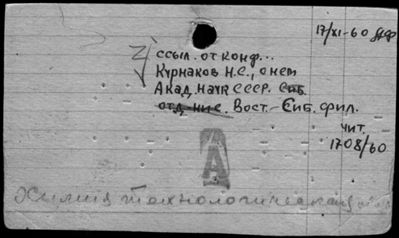 17/XI-60
2) ссыл. от конф...
Курнаков Н.С., о нем
Акад. наук СССР. Сиб.
отд-ние. Вост.-Сиб. фил.
чит.
1708/60
А
Химия технологическая